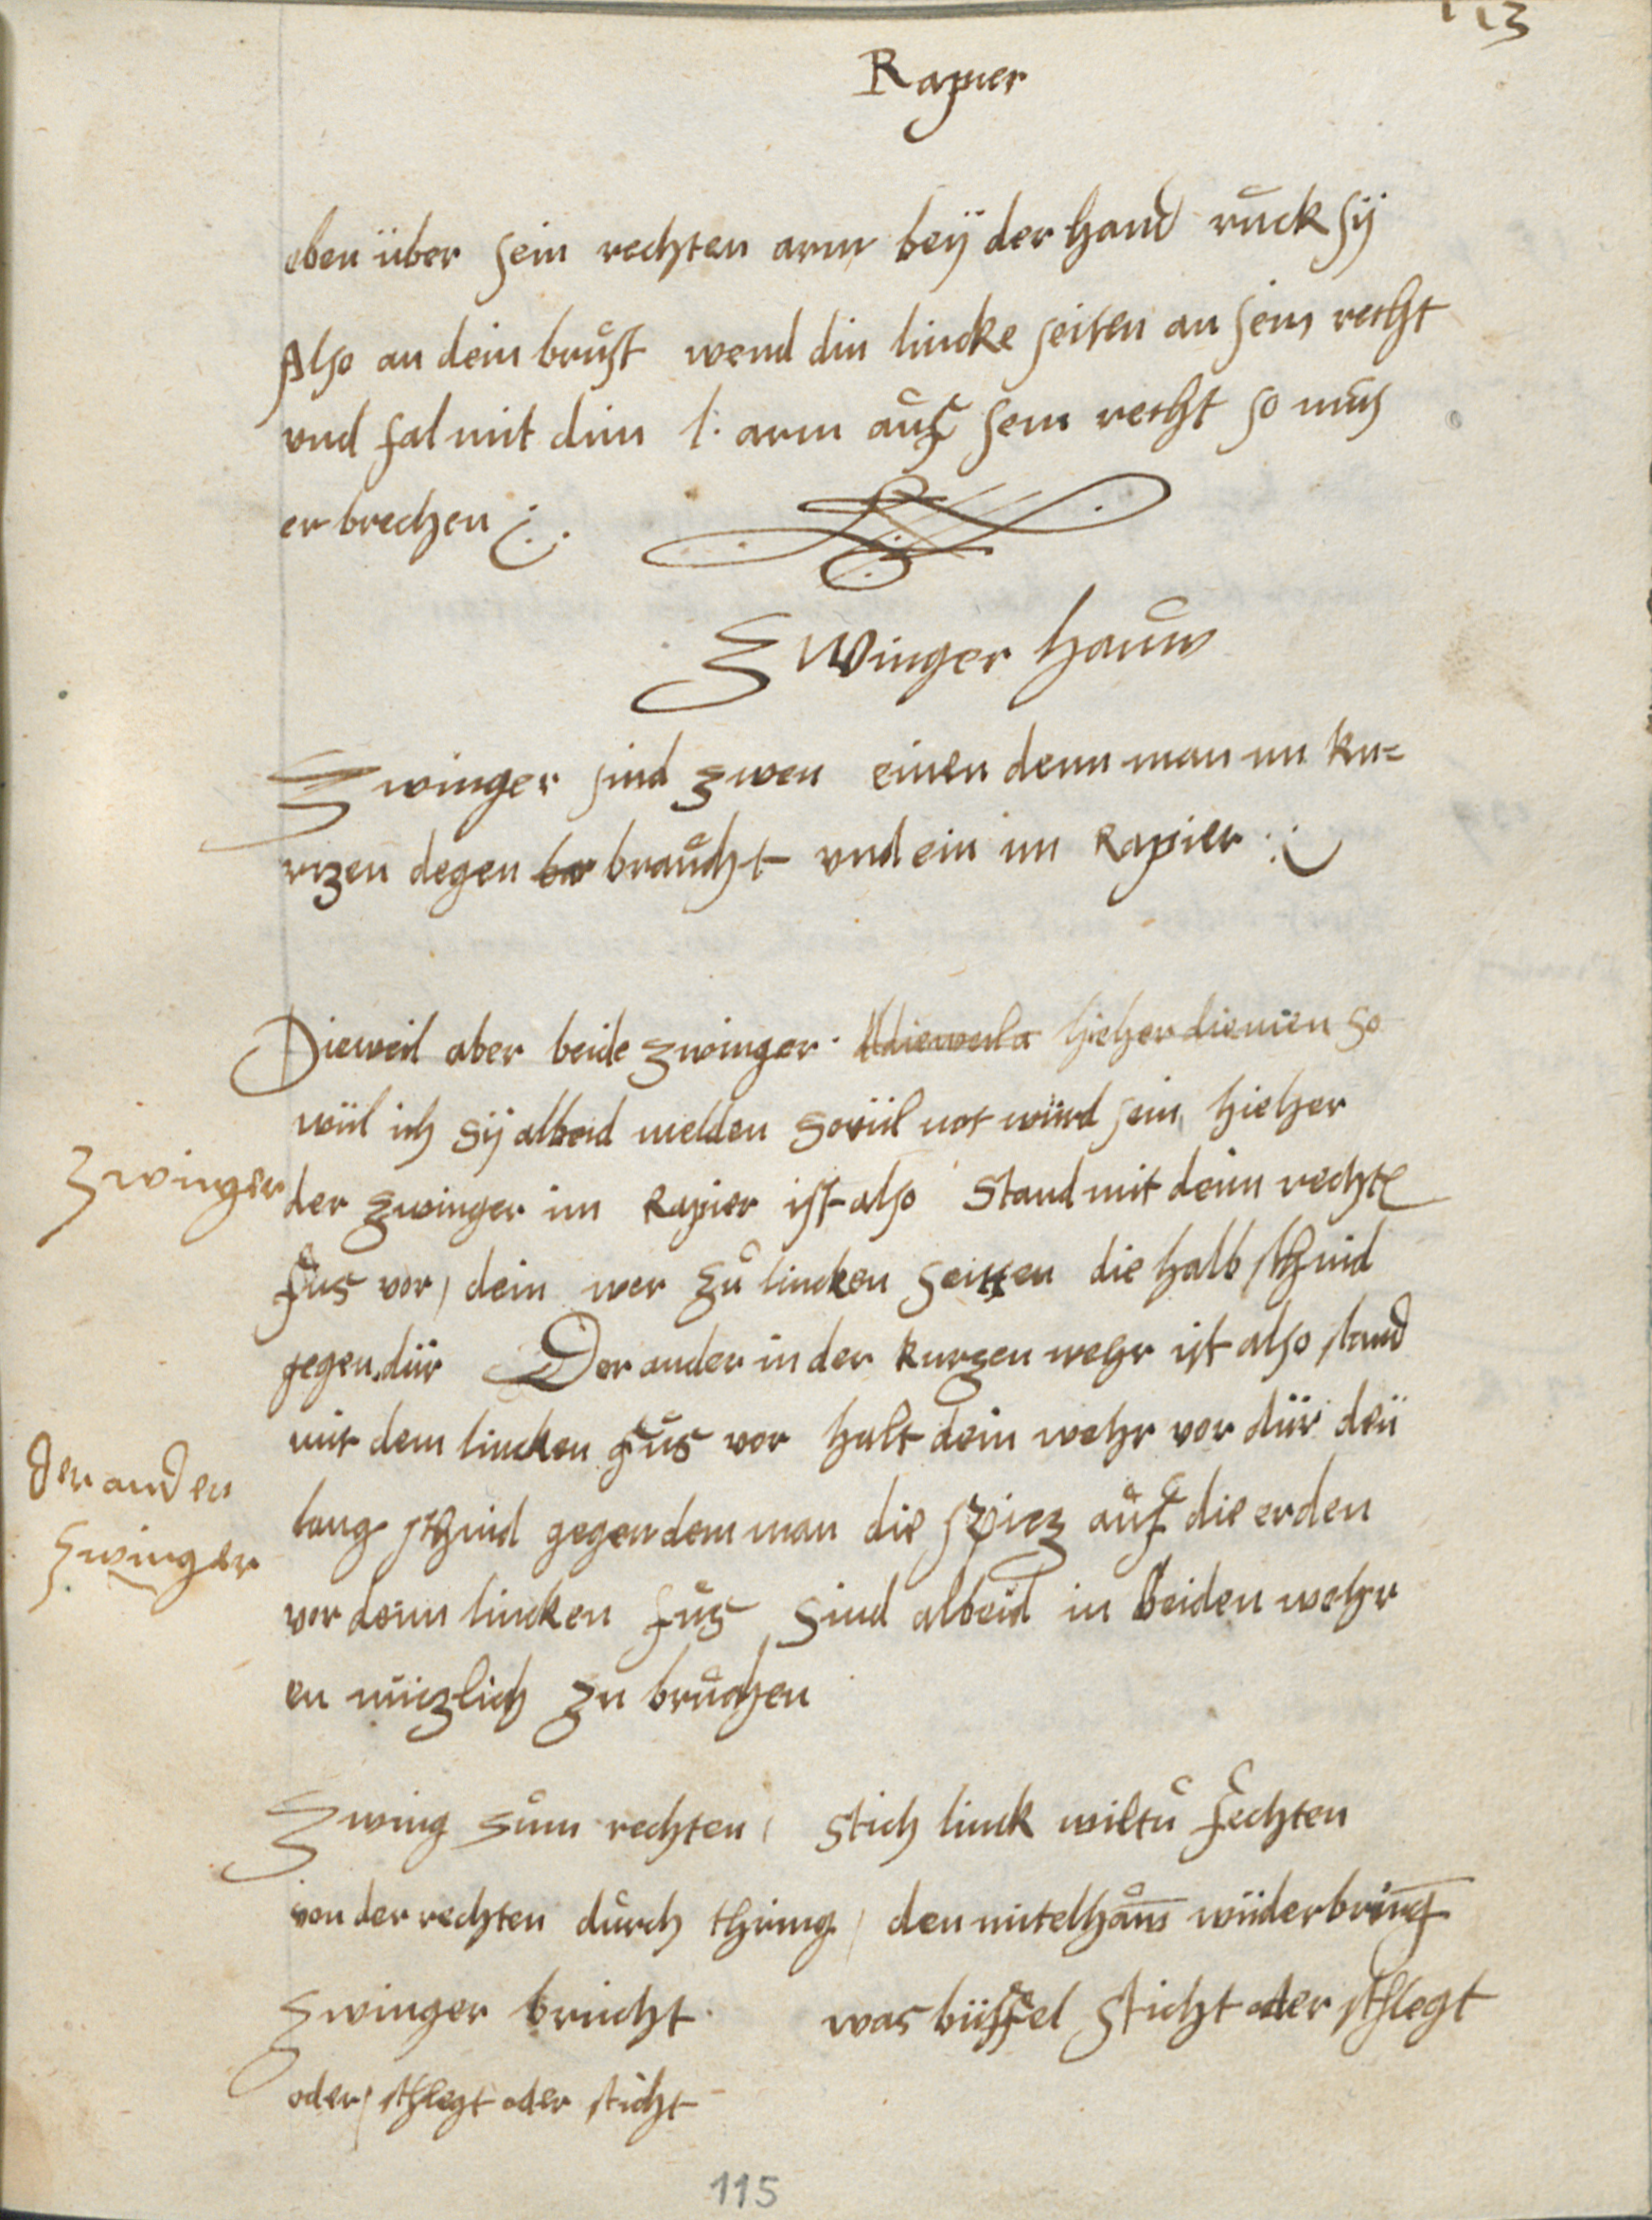 113
Rapier
eben über sein rechten arm beÿ der hand ruck sÿ
Also an dein brust wend din lincke seiten an sein recht
vnd fal mit dim l. arm auf sein recht so mus
er brechen
Zwinger hauw
Zwinger sind zwen einen denn man im ku=
rzen degen bar braucht vnd ein im Rapier
Dieweil aber beide zwinger. dieweila hieher dienen so
wiil ich sÿ albeid melden soviil not wiird sein hieher
Zwinger
der zwinger im Rapier ist also stand mit deim rechte
fus vor, dein wer zu lincken seitten die halb schnid
gegen diir Der ander in der kurzen wehr ist also stand
mit dem lincken fus vor halt dein wehr vor diir deii
der ander
Zwinger
lang schnid gegen dem man die spiez auf die erden
vor deim lincken fus sind albeid in beiden wehr
en niizlich zu bruchen
Zwing zum rechten, stich linck wiltu fechten
von der rechten durch thring, den mitelhauw wiiderbring
Zwinger bricht. was biiffel sticht oder schlegt
oder, schlegt oder sticht
115